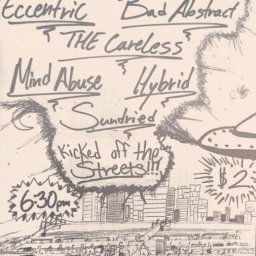 Eccentric Bad Abstract
THE Careless
Mind Abuse Hybrid
Sundried
Kicked off the
Streets!!!
$2
6:30pm